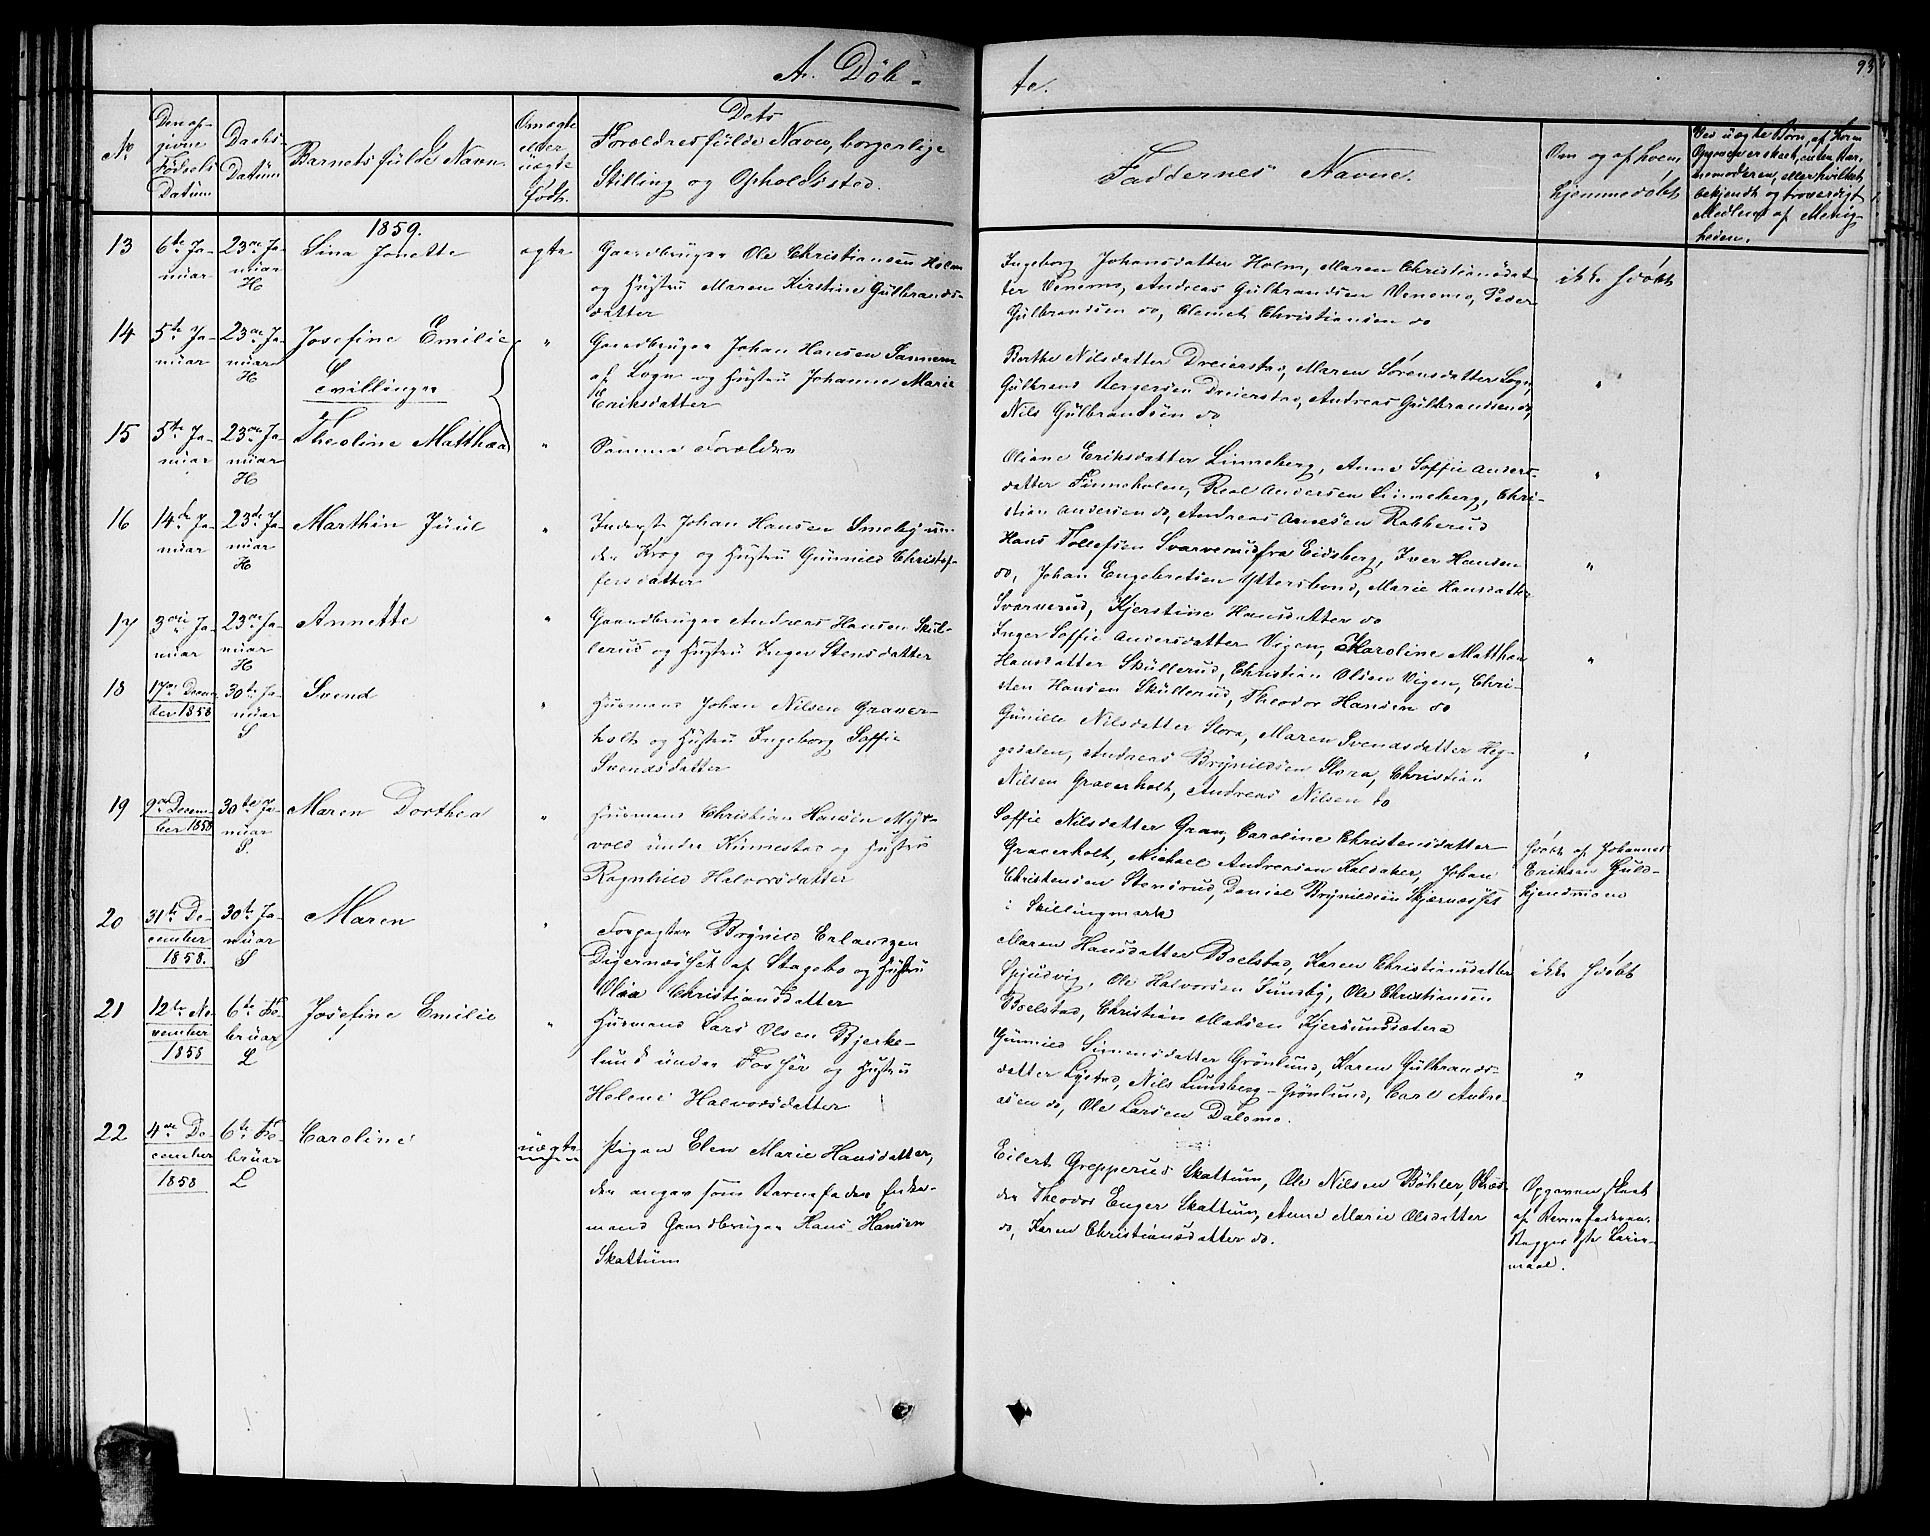 A. Döb-
te.
No
Den op-
givne
Födsels
Datum
Daabs-
Datum
Barnets fulde Navn.
Om ægte
eller
uægte
födt.
Dets
Forældres fulde Navn, borgerlige
Stilling og Opholdssted.
Faddernes Navne.
Om og af hvem
hjemmedöbt
1859.
13
6te Ja-
nuar
23de Ja-
nuar
H
Lina Jonette
ægte
Gaardbruger Ole Christiansen Holm
og Hustru Maren Kirstine Gulbrands-
datter
Ingeborg Johansdatter Holm, Maren Christiansdat-
ter Venemo, Andreas Gulbrandsen Venemo, Peder
Gulbrandsen do, Clemet Christiansen do
ikke hjdöbt
14
5te Ja-
nuar
23de Ja-
nuar
H
Josefine Emilie
Tvillinger
"
Gaardbruger Johan Hansen Sannem
af Sogn og Hustru Johanne Marie
Eriksdatter
Berthe Nilsdatter Dreierstad, Maren Sörensdatter Sogn,
Gulbrand Bergersen Dreierstad, Andreas Gulbrandsen do,
Nils Gulbrandsen do.
"
15
5te Ja-
nuar
23de Ja-
nuar
H
Theoline Matthea
"
Samme Forældre
Oliane Eriksdatter Linneberg, Anne Soffie Anders-
datter Finneholen, Andersen Linneberg, Chri-
stian Andersen do, Andreas Arnesen
"
16
14de Ja-
nuar
23de Ja-
nuar
H
Marthin Juul
"
Inderst Johan Hansen Smeby un-
der Krog og Hustru Gunnild Christof-
fersdatter
Hans Tollefsen Svarverud fra Eidsberg, Iver Hansen
do, Johan Engebretsen Yttersbond, Marie Hansdatter
Svarverud, Kjerstine Hansdatter do
"
17
3die Ja-
nuar
23de Ja-
nuar
H
Annette
"
Gaardbruger Andreas Hansen Skul-
lerud og Hustru Inger Stensdatter
Inger Soffie Andersdatter Vigen, Karoline Matthea
Hansdatter Skullerud, Christian Olsen Vigen, Chri-
sten Hansen Skullerud, Theodor Hansen do
"
18
17de Decem-
ber 1858
30te Ja-
nuar
S
Svend
"
Husmand Johan Nilsen Graver-
holt og Hustru Ingeborg Soffie
Svendsdatter
Gunille Nilsdatter Slora, Maren Svendsdatter Heg-
gedalen, Andreas Brynildsen Slora, Christian
Nilsen Graverholt, Andreas Nilsen do
"
19
9de Decem-
ber 1858
30te Ja-
nuar
S.
Maren Dorthea
"
Husmand Christian Hansen Myr-
vold under Kinnestad og Hustru
Ragnhild Halvorsdatter
Soffie Nilsdatter Gran, Caroline Christensdatter
Graverholt, Michael Andreasen Kaldaker, Johan
Christensen Stensrud, Daniel Brynildsen Skjærnæsset
i Skillingmark
hjdöbt af Johannes
Eriksen Huld-
20
31te De-
cember
1858.
30te Ja-
nuar
S
Maren
"
Forpagter Brynild Erlandsen
Digernæsset af Stagebo og Hustru
Olea Christiansdatter
Maren Hansdatter Boelstad, Karen Christiansdatter
Spjudvig, Ole Halvorsen Sundby, Ole Christiansen
Boelstad, Christian Madsen Kjersundsætera
ikke hjdöbt
21
12te No-
vember
1858
6te Fe-
bruar
L
Josefine Emilie
"
Husmand Lars Olsen Bjerke-
lund under Fosser og Hustru
Helene Halvorsdatter
Gunnild Simensdatter Grönlund, Karen Gulbrands-
datter Lystad, Nils Lundberg - Grönlund, Carl Andre-
asen do, Ole Larsen Dalomo.
"
22
4de De-
cember
1858
6te Fe-
bruar
L
Caroline
uægte
Pigen Elen Marie Hansdatter,
der angav som Barnefader Enke-
mand Gaardbruger Hans Hansen
Skattum
Eilert Grepperud Skattum, Ole Nilsen Böhler,
Theodor Enger Skattum, Anne Marie Olsdatter
do, Karen Christiansdatter do.
Opgaven skeet
af Barnefaderen.
Begges 1ste Leier-
maal.